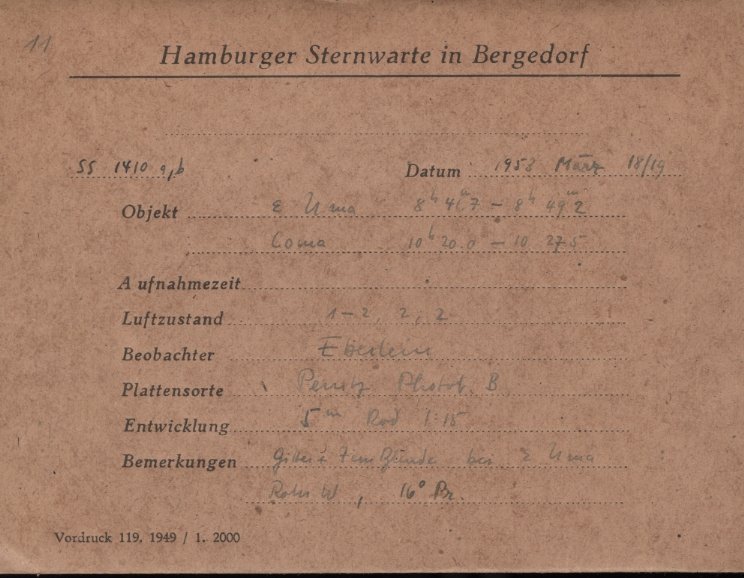 11
Hamburger Sternwarte in Bergedorf
SS 1410 a,b Datum 1953 März 18/19
Objekt ε Uma 8ʰ 46ᵐ7 – 8ʰ 49ᵐ2
Coma 10ʰ 20.0 – 10 27.5
Aufnahmezeit
Luftzustand 1–2, 2, 2
Beobachter
Plattensorte Perutz Photot. B
Entwicklung 5ᵐ Rod 1:15
Bemerkungen Gitter bei ε Uma
Rohr W, 16° Pr.
Vordruck 119. 1949 / 1. 2000